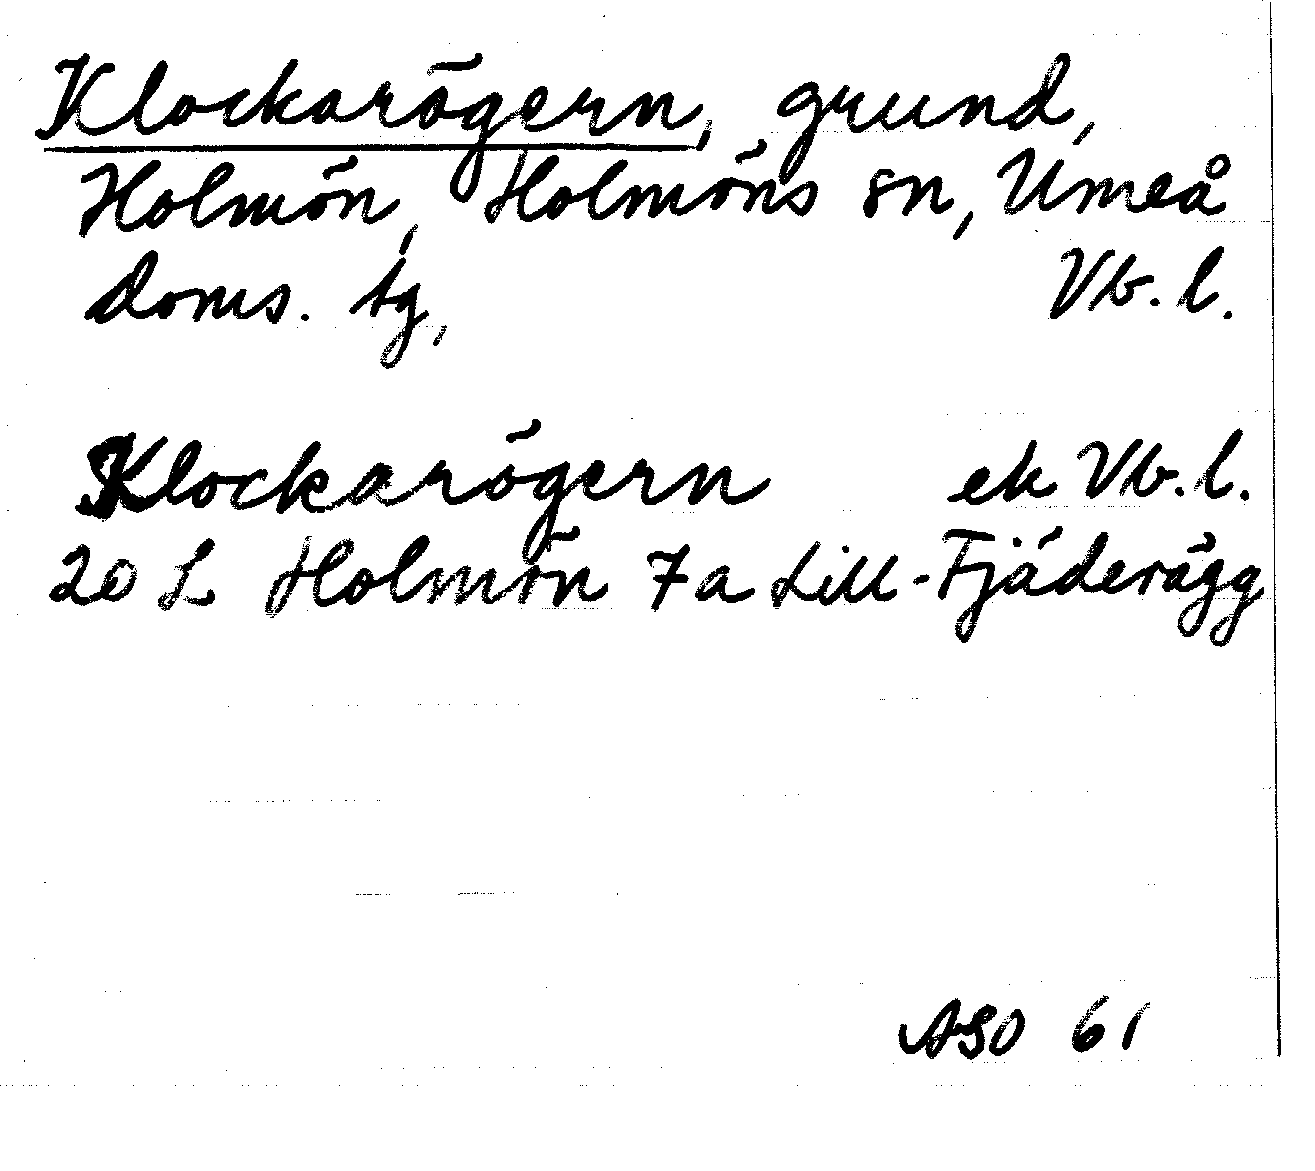 Klockarögern, grund,
Holmön, Holmöns sn, Umeå
doms. tg, Vb. l.
Klockarögern ek Vb. l.
20 L Holmön 7a Lill-Fjäderägg
ASO 61